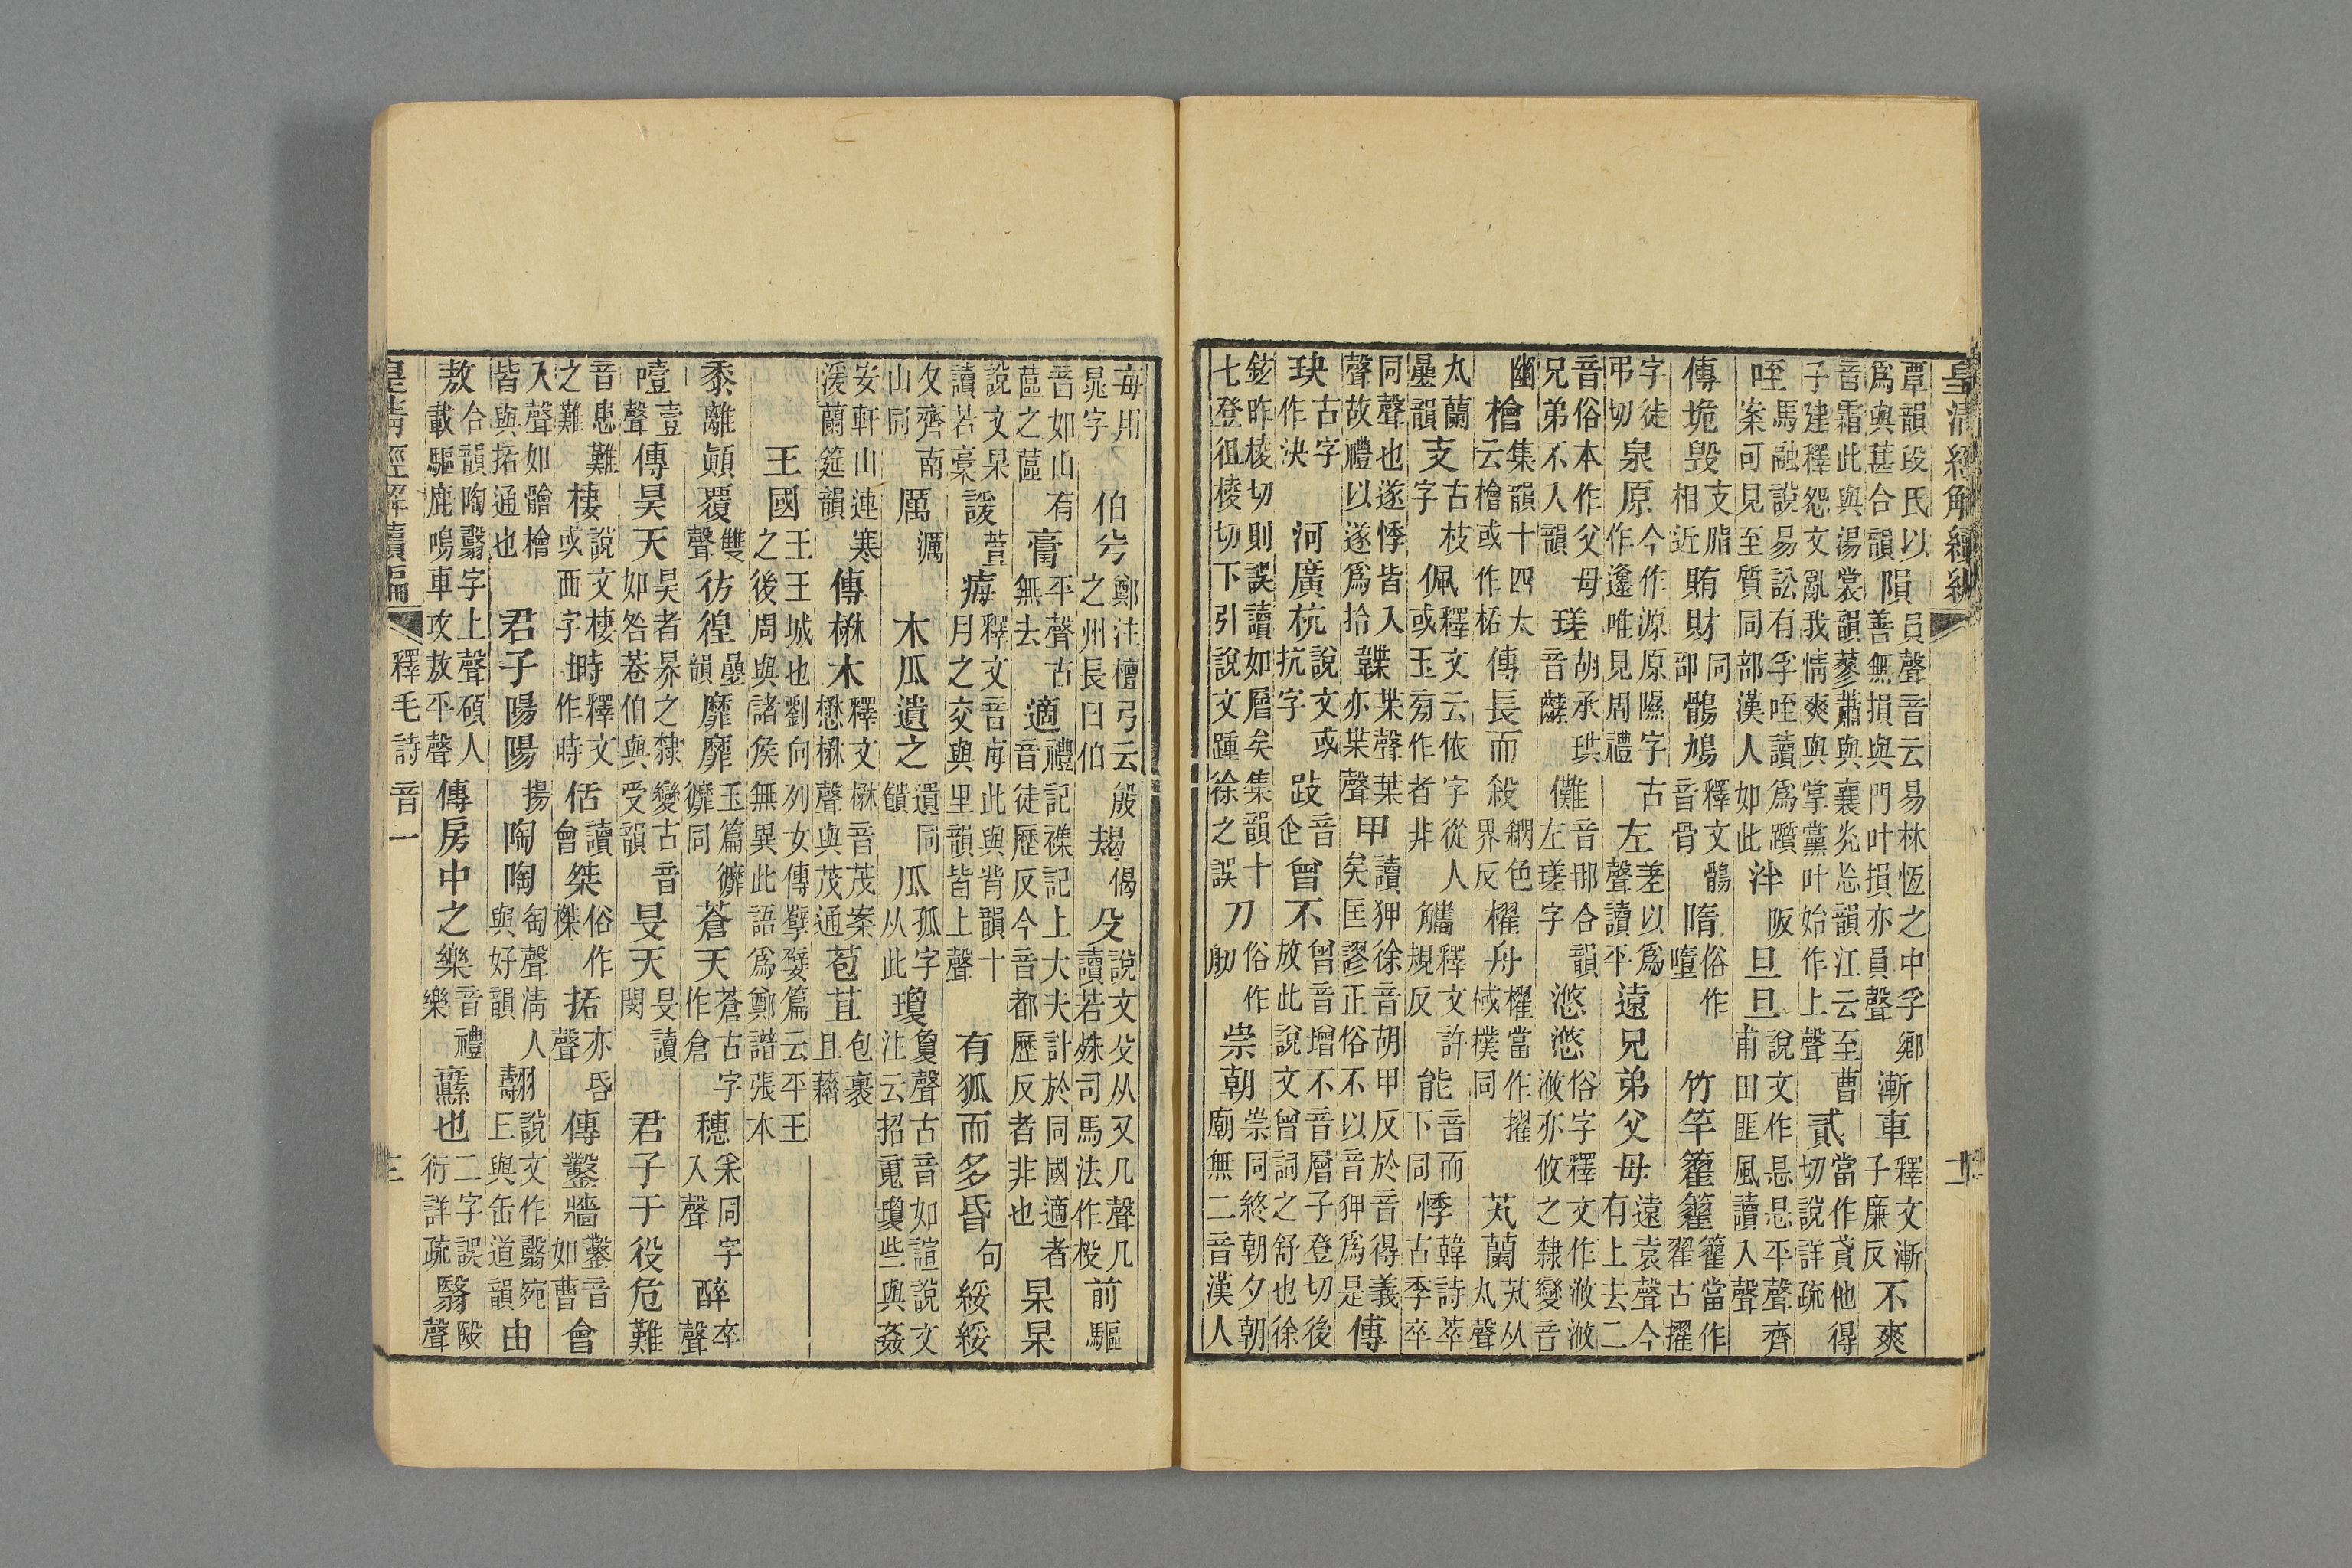 皇清經解續編
覃韻段氏以
爲與葚合韻
隕
員聲音云易林恆之中孚鄉
善無損與門叶損亦員聲
漸車
釋文漸
子廉反
不爽
音霜此與湯裳韻蓼蕭與襄忘韻江云至曹
子建釋怨文亂我情爽與掌黨叶始作上聲
貳
當作貣他得
切說詳疏
咥
馬融說易訟有孚咥讀爲躓
案可見至質同部漢人如此
泮
阪
旦旦
說文作悬悬平聲齊
甫田匪風讀入聲
傳
垝毀
支脂
相近
賄財
同
部
鶻鳩
釋文鶻
音骨
隋
俗作
墮
竹竿
籊籊
籊當作
翟古擢
字徒
弔切
泉原
今作源原隰字古
作邍唯見周禮
左
差以爲
聲讀平
遠兄弟父母
遠袁聲今
有上去二
音俗本作父母
兄弟不入韻
瑳
胡承珙
音齹
儺
音那合韻
左瑳字
滺滺
俗字釋文作浟浟
浟亦攸之隸變音
幽
檜
集韻十四太
云檜或作㭘
傳
長而殺
色
界反
櫂舟
櫂當作擢
棫樸同
芄蘭
芄从
丸聲
丸蘭
疊韻
支
古枝
字
佩
釋文云依字從人
或玉旁作者非
觿
釋文許
規反
能
音而
下同
悸
韓詩萃
古季卒
同聲也遂悸皆入
聲故禮以遂爲拾
韘
枼聲葉
亦枼聲
甲
讀狎徐音胡甲反於音得義
矣匡謬正俗不以音狎爲是
傳
玦
古字
作決
河廣
杭
說文或
抗字
跂
音
企
曾不
曾音增不音層子登切後
放此說文曾詞之舒也徐
鉉昨棱切則誤讀如層矣集韻十
七登徂棱切下引說文踵徐之誤
刀
俗作
舠
崇朝
崇同終朝夕朝
廟無二音漢人
每用
鼂字
伯兮
鄭注檀弓云殷
之州長曰伯
朅
偈
殳
說文殳从又几聲几
讀若殊司馬法作杸
前驅
音如山有
蓲之蓲
膏
平聲古
無去
適
禮記襍記上大夫計於同國適者
音徒歷反今音都歷反者非也
杲杲
說文杲
讀若槀
諼
萱
痗
釋文音每此與背韻十
月之交與里韻皆上聲
有狐而多昏
句
綏綏
夂齊南
山同
厲
濿
木瓜遺之
遺同
饋
瓜
孤字
从此
瓊
夐聲古音如諠說文
注云招䰟瓊些與姦
安軒山連寒
湲蘭筵韻
傳
楙木
釋文楙音茂案
懋楙聲與茂通
苞苴
包裹
且藉
王國
王王城也劉向列女傳孽嬖篇云平王
之後周與諸侯無異此語爲鄭譜張本
黍離
顚覆
雙
聲
彷徨
疊
韻
靡靡
玉篇
同
蒼天
蒼古字
作倉
穗
采同字
入聲
醉
卒
聲
噎
壹
聲
傳
昊天
昊者昦之隸變古音
如咎巷伯與受韻
旻天
旻讀
閔
君子于役
危難
音患難
之難
棲
說文棲
或西字
塒
釋文
作時
佸
讀
會
桀
俗作
榤
括
亦昏
聲
傳
鑿牆
鑿音
如曹
會
入聲如膾檜
皆與括通也
君子陽陽
揚
陶陶
匋聲清人
與好韻
翿
說文作翳宛
與缶道韻
由
敖
合韻陶翿字上聲碩人
載驅鹿鳴車攻敖平聲
傳
房中之樂
音禮
樂
纛也
二字誤
衍詳疏
翳
殹
聲
皇清經解續編
釋毛詩音一
三